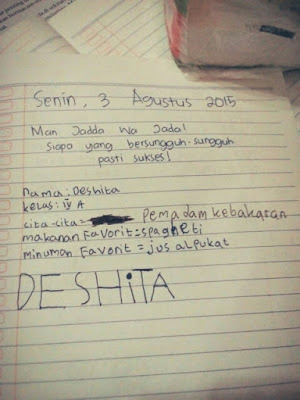 Senin, 3 Agustus 2015
Man Jadda Wa Jada!
Siapa yang bersungguh-sungguh
pasti sukses!
Nama: Deshita
kelas: IV A
cita-cita= Pemadam kebakaran
makanan Favorit=spagheti
minuman Favorit = jus alpukat
DESHiTA